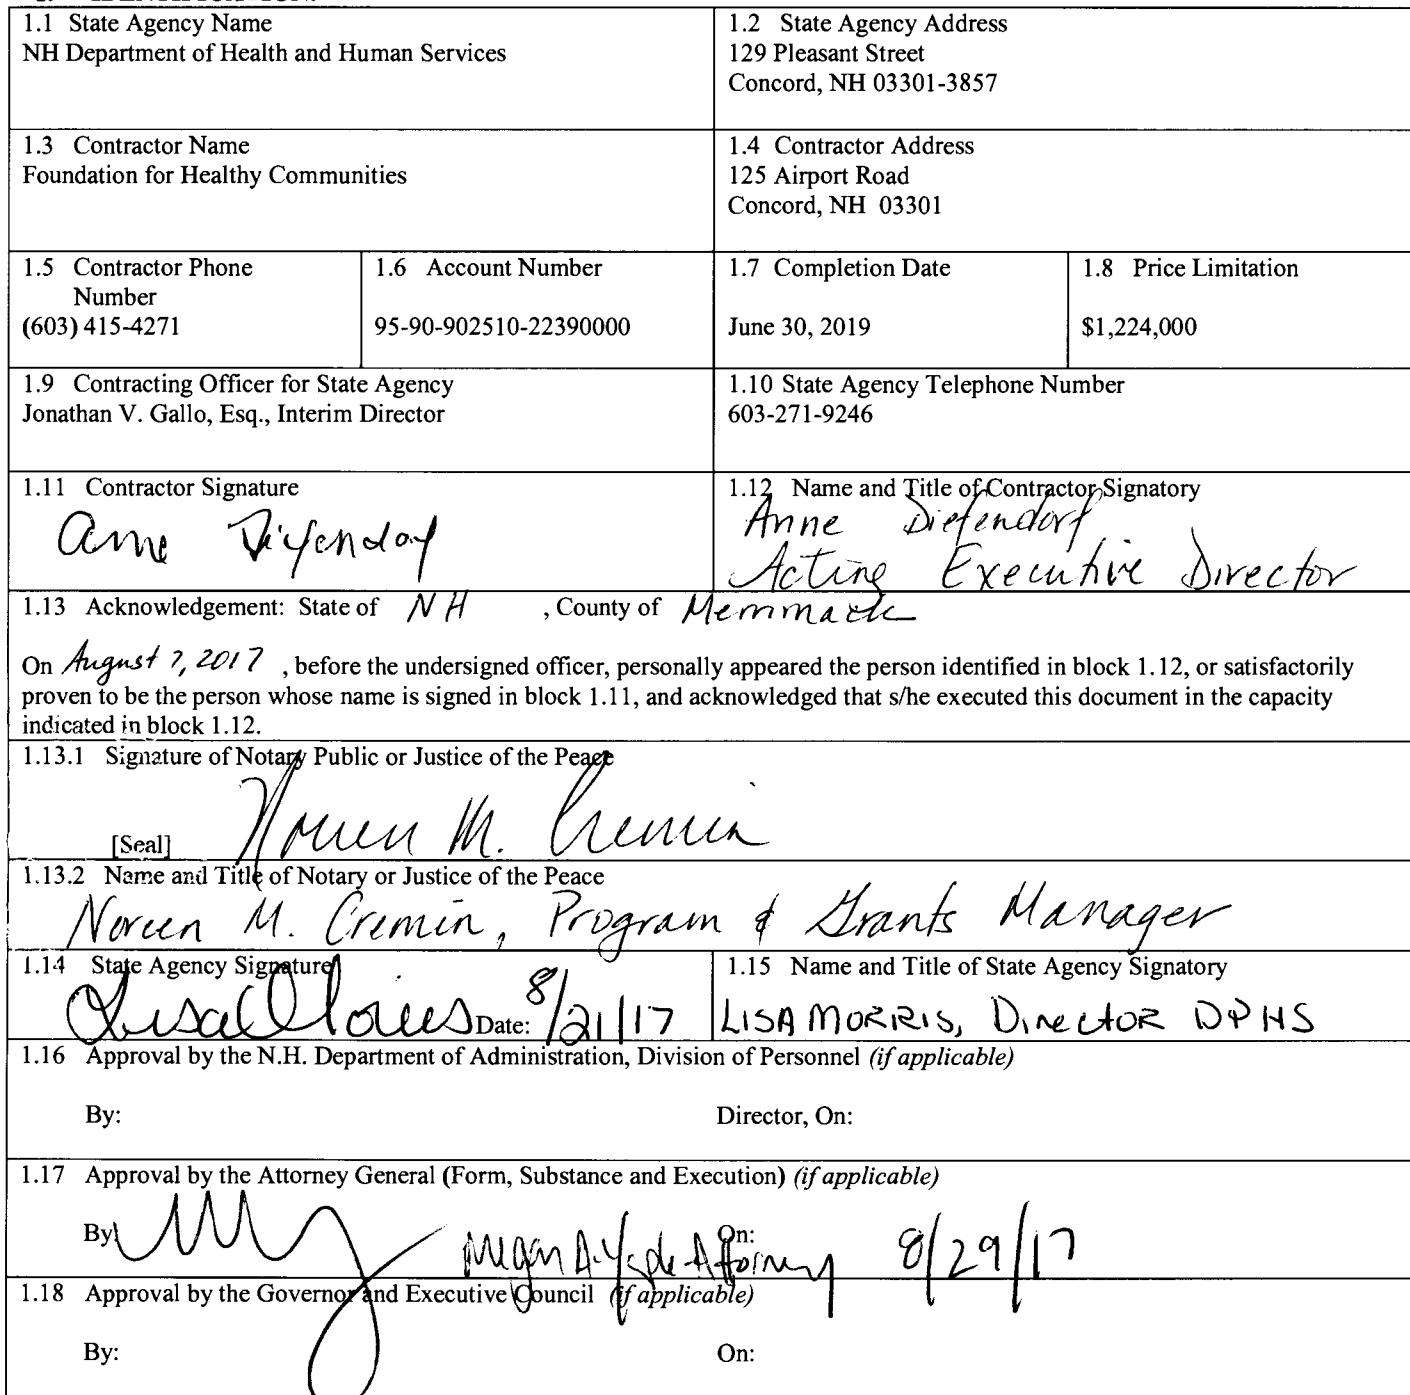 1.1 State Agency Name
NH Department of Health and Human Services
1.2 State Agency Address
129 Pleasant Street
Concord, NH 03301-3857
1.3 Contractor Name
Foundation for Healthy Communities
1.4 Contractor Address
125 Airport Road
Concord, NH 03301
1.5 Contractor Phone
Number
(603) 415-4271
1.6 Account Number
95-90-902510-22390000
1.7 Completion Date
June 30, 2019
1.8 Price Limitation
$1,224,000
1.9 Contracting Officer for State Agency
Jonathan V. Gallo, Esq., Interim Director
1.10 State Agency Telephone Number
603-271-9246
1.11 Contractor Signature
Anne Diefendorf
1.12 Name and Title of Contractor Signatory
Anne Diefendorf
Acting Executive Director
1.13 Acknowledgement: State of NH , County of Merrimack
On August 7, 2017 , before the undersigned officer, personally appeared the person identified in block 1.12, or satisfactorily
proven to be the person whose name is signed in block 1.11, and acknowledged that s/he executed this document in the capacity
indicated in block 1.12.
1.13.1 Signature of Notary Public or Justice of the Peace
[Seal] Noreen M. Cremin
1.13.2 Name and Title of Notary or Justice of the Peace
Noreen M. Cremin, Program & Grants Manager
1.14 State Agency Signature
Lisa Morris Date: 8/21/17
1.15 Name and Title of State Agency Signatory
LISA MORRIS, Director DPHS
1.16 Approval by the N.H. Department of Administration, Division of Personnel (if applicable)
By: Director, On:
1.17 Approval by the Attorney General (Form, Substance and Execution) (if applicable)
By: Megan A. Attorney On: 8/29/17
1.18 Approval by the Governor and Executive Council (if applicable)
By: On: